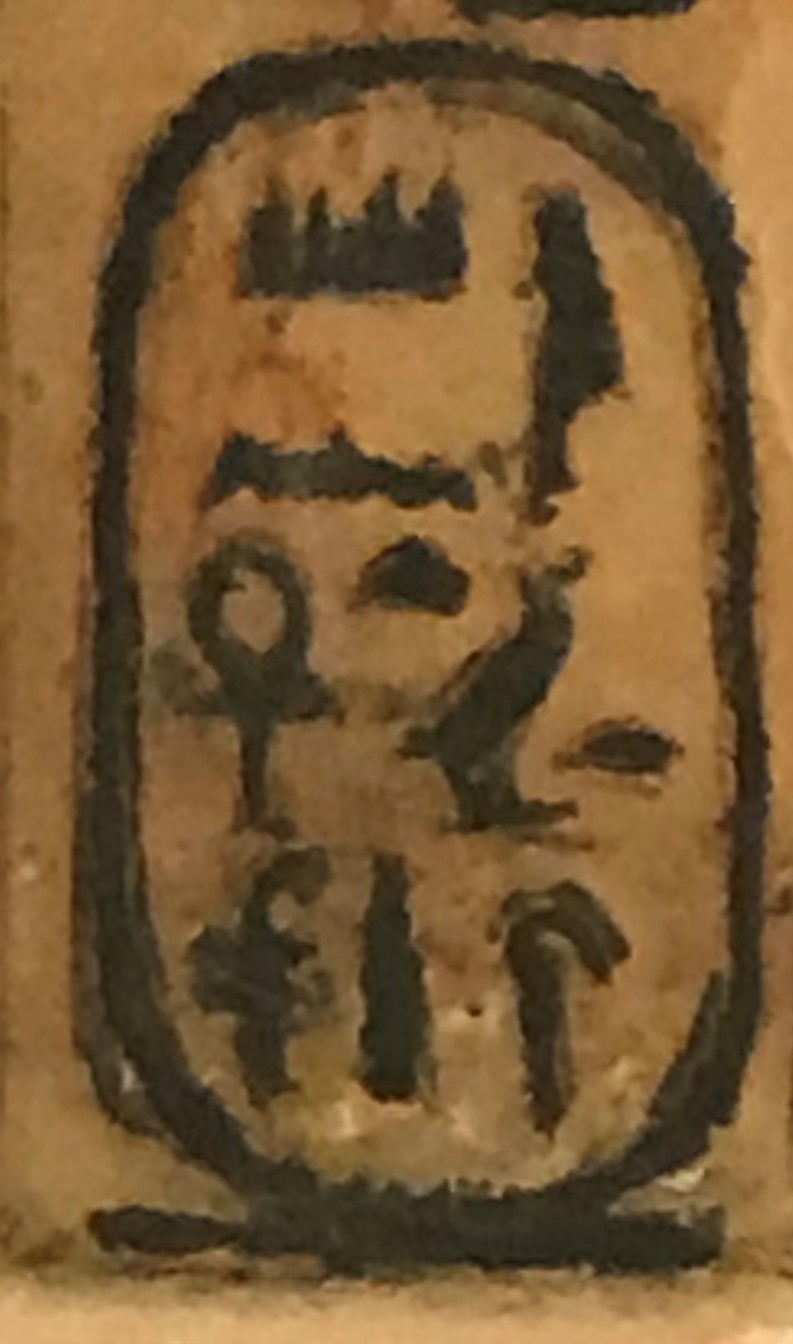 𓇋𓏠𓈖
𓏏𓅱𓏏𓋹
𓋾𓉺𓇗